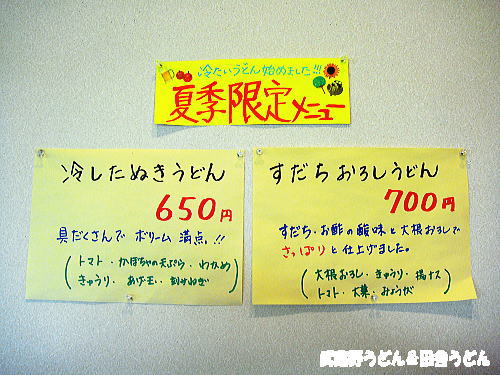 冷たいうどん始めました!!!
夏季限定メニュー
冷したぬきうどん
650円
具だくさんで ボリーム 満点.!!
(トマト・かぼちゃの天ぷら・わかめ
きゅうり・あげ玉・刻みねぎ)
すだちおろしうどん
700円
すだち・お酢の酸味と大根おろしで
さっぱりと仕上げました。
(大根おろし・きゅうり・揚ナス
トマト・大葉・みょうが)
武蔵野うどん&田舎うどん